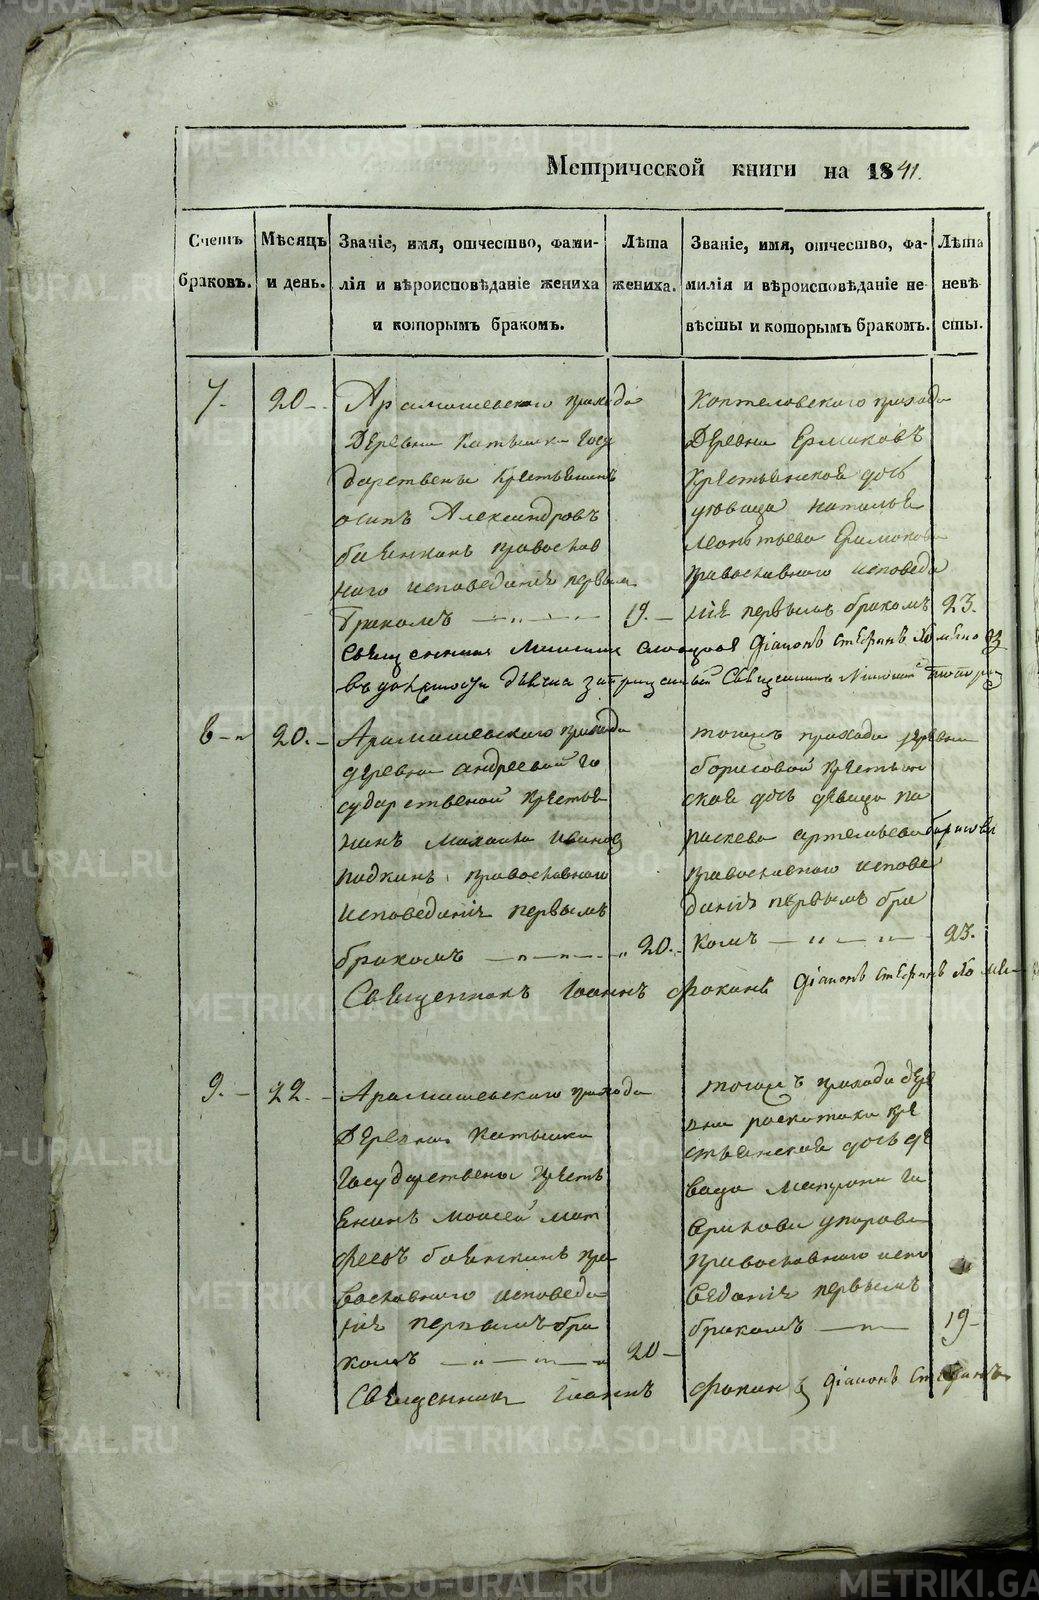 Метрической книги на 1841.
Счетъ браковъ.
Мѣсяцъ и день.
Званіе, имя, отчество, фами-
лія и вѣроисповѣданіе жениха
и которымъ бракомъ.
Лѣта
жениха.
Званіе, имя, отчество, фа-
милія и вѣроисповѣданіе не-
вѣсты и которымъ бракомъ.
Лѣта
невѣ
сты.
7.
20
Арамашевскаго прихода
Деревни Катышки Госу
дарствены Крестьянинъ
осипъ Александровъ
баянкинъ православ
наго исповеданія первымъ
бракомъ
19.
Коптеловскаго прихода
Деревни Ермаковъ
Крестьянская дочь
девица наталья
леонтьева Ермакова
православнаго исповеда
нія первымъ бракомъ
23.
Священникъ діаконъ стефанъ
Священникъ
8
20.
Арамашевскаго прихода
деревни андреевой го
сударственой крестья
нинъ Михаила Иванов
православнаго
исповеданія первымъ
бракомъ
20.
тогожъ прихода деревни
борисовой крестьян
ская дочь девица па
раскева артемьева борисова
православнаго испове
данія первымъ бра
комъ
23.
Священникъ Іоаннъ Фокинъ діаконъ стефанъ
9.
22.
Арамашевскаго прихода
Деревни Катышки
Государствены Кресть
янинъ Моисей Мат
феевъ баянкинъ пра
вославнаго исповеда
нія первымъ бра
комъ
20
тогожъ прихода дере
вни раскатихи кре
стьянская дочь де
вица Матрона га
врилова упорова
православнаго испо
веданія первымъ
бракомъ
19
Священникъ Іоаннъ Фокинъ діаконъ Стефанъ
METRIKI.GASO-URAL.RU